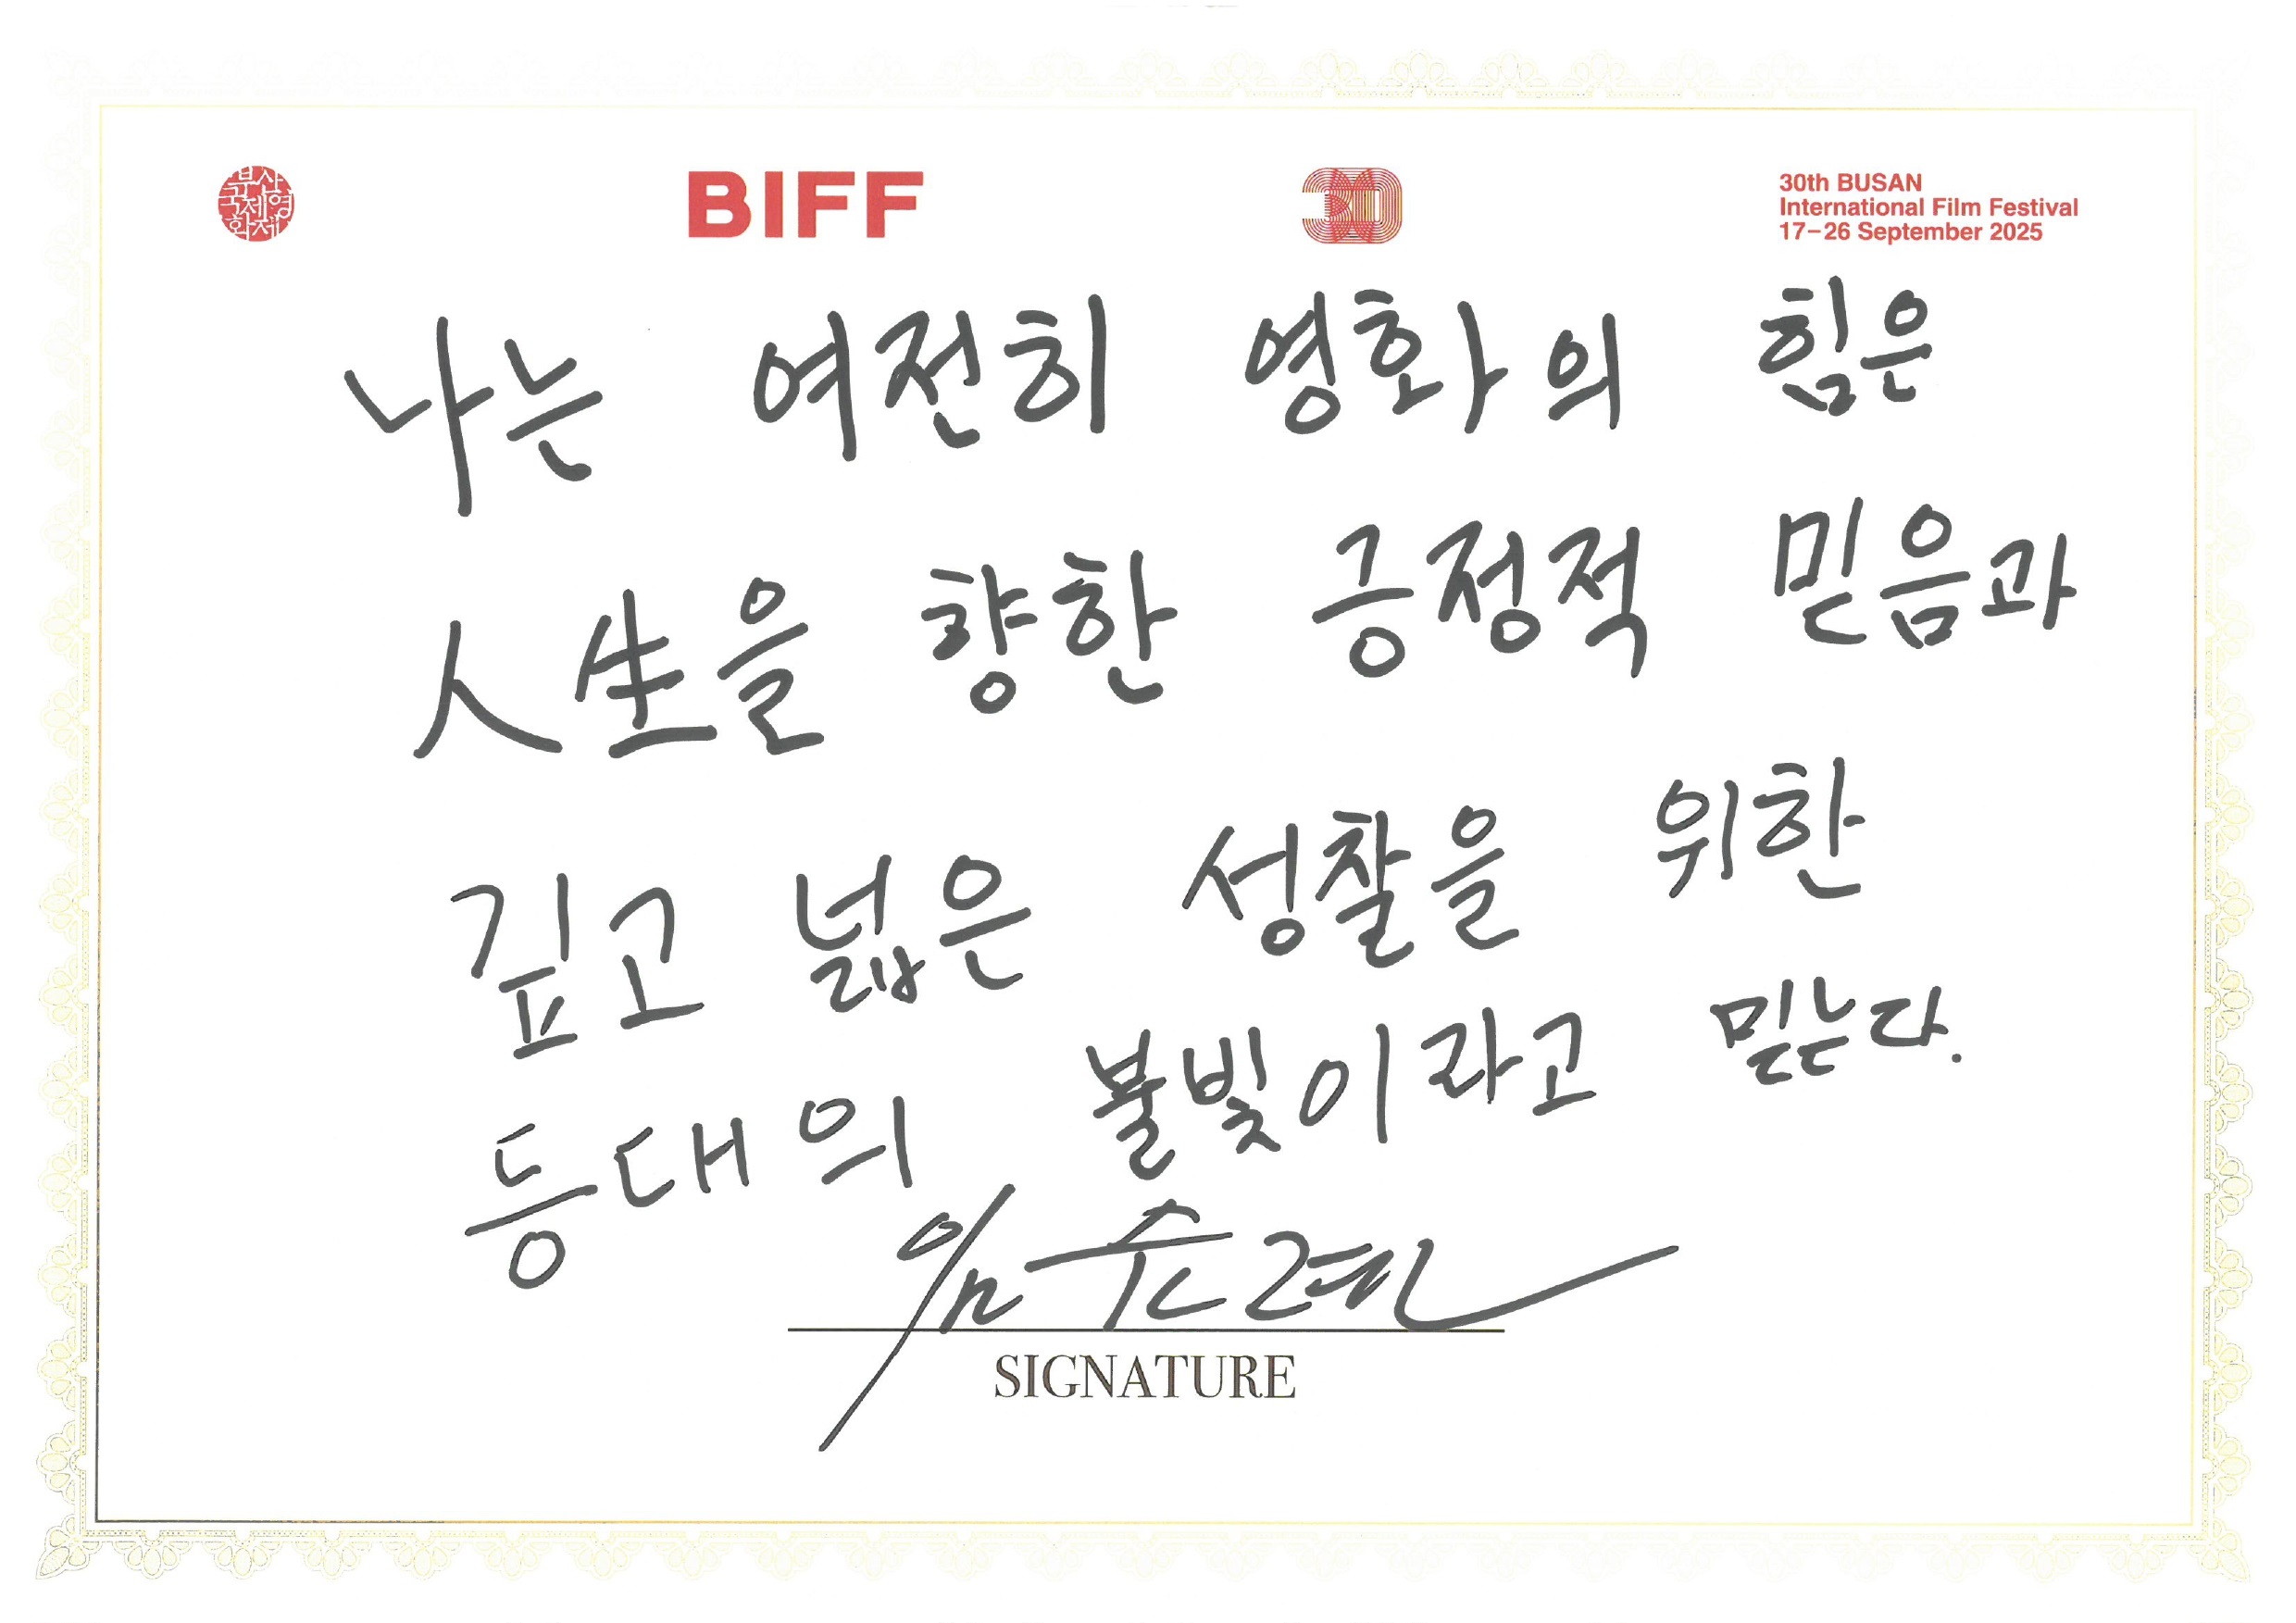 부산국제영화제
BIFF
30
30th BUSAN
International Film Festival
17–26 September 2025
나는 여전히 영화의 힘은
人生을 향한 긍정적 믿음과
깊고 넓은 성찰을 위한
등대의 불빛이라고 믿는다.
SIGNATURE